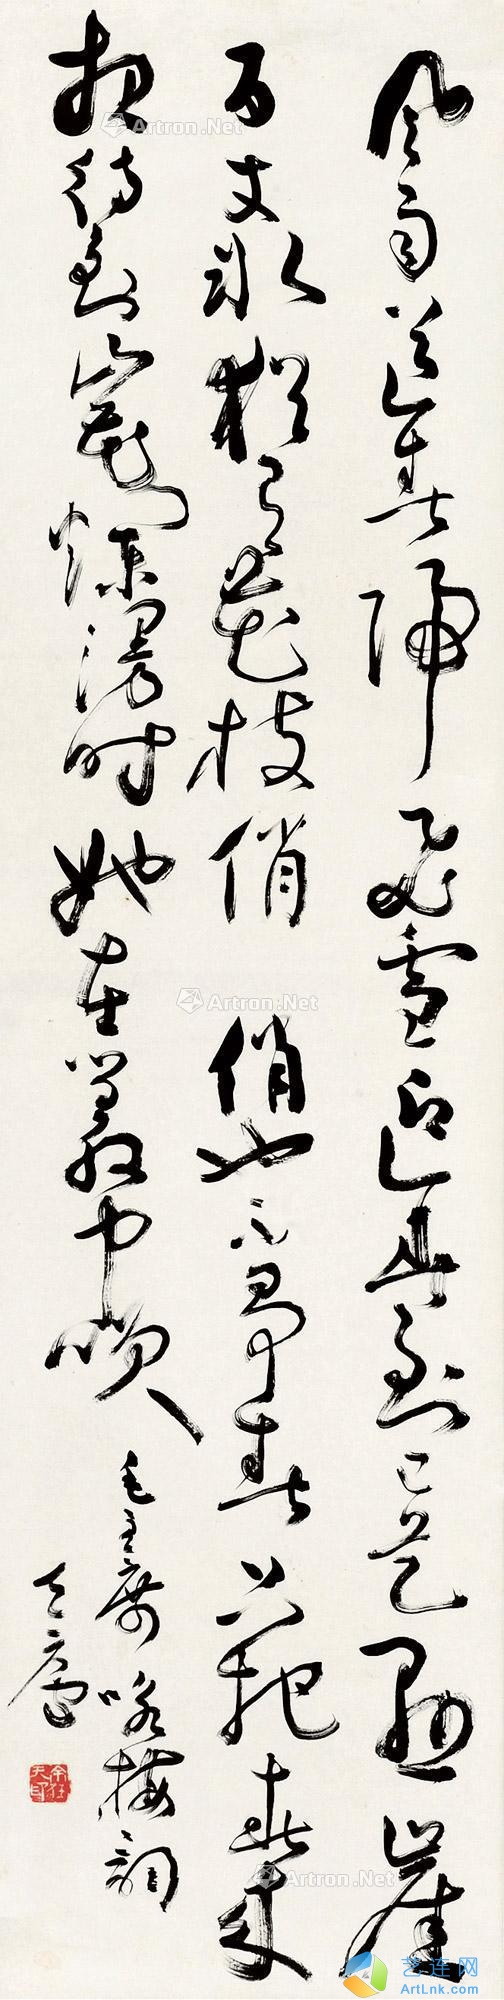 風雨送春歸飛雪迎春到已是懸崖
百丈冰猶有花枝俏 俏也不爭春只把春來
報待到山花爛漫时她在叢中咲
毛主席咏梅詞
天廬
余任天印
Artron.Net
Artron.Net
Artron.Net
艺连网
ArtLink.com